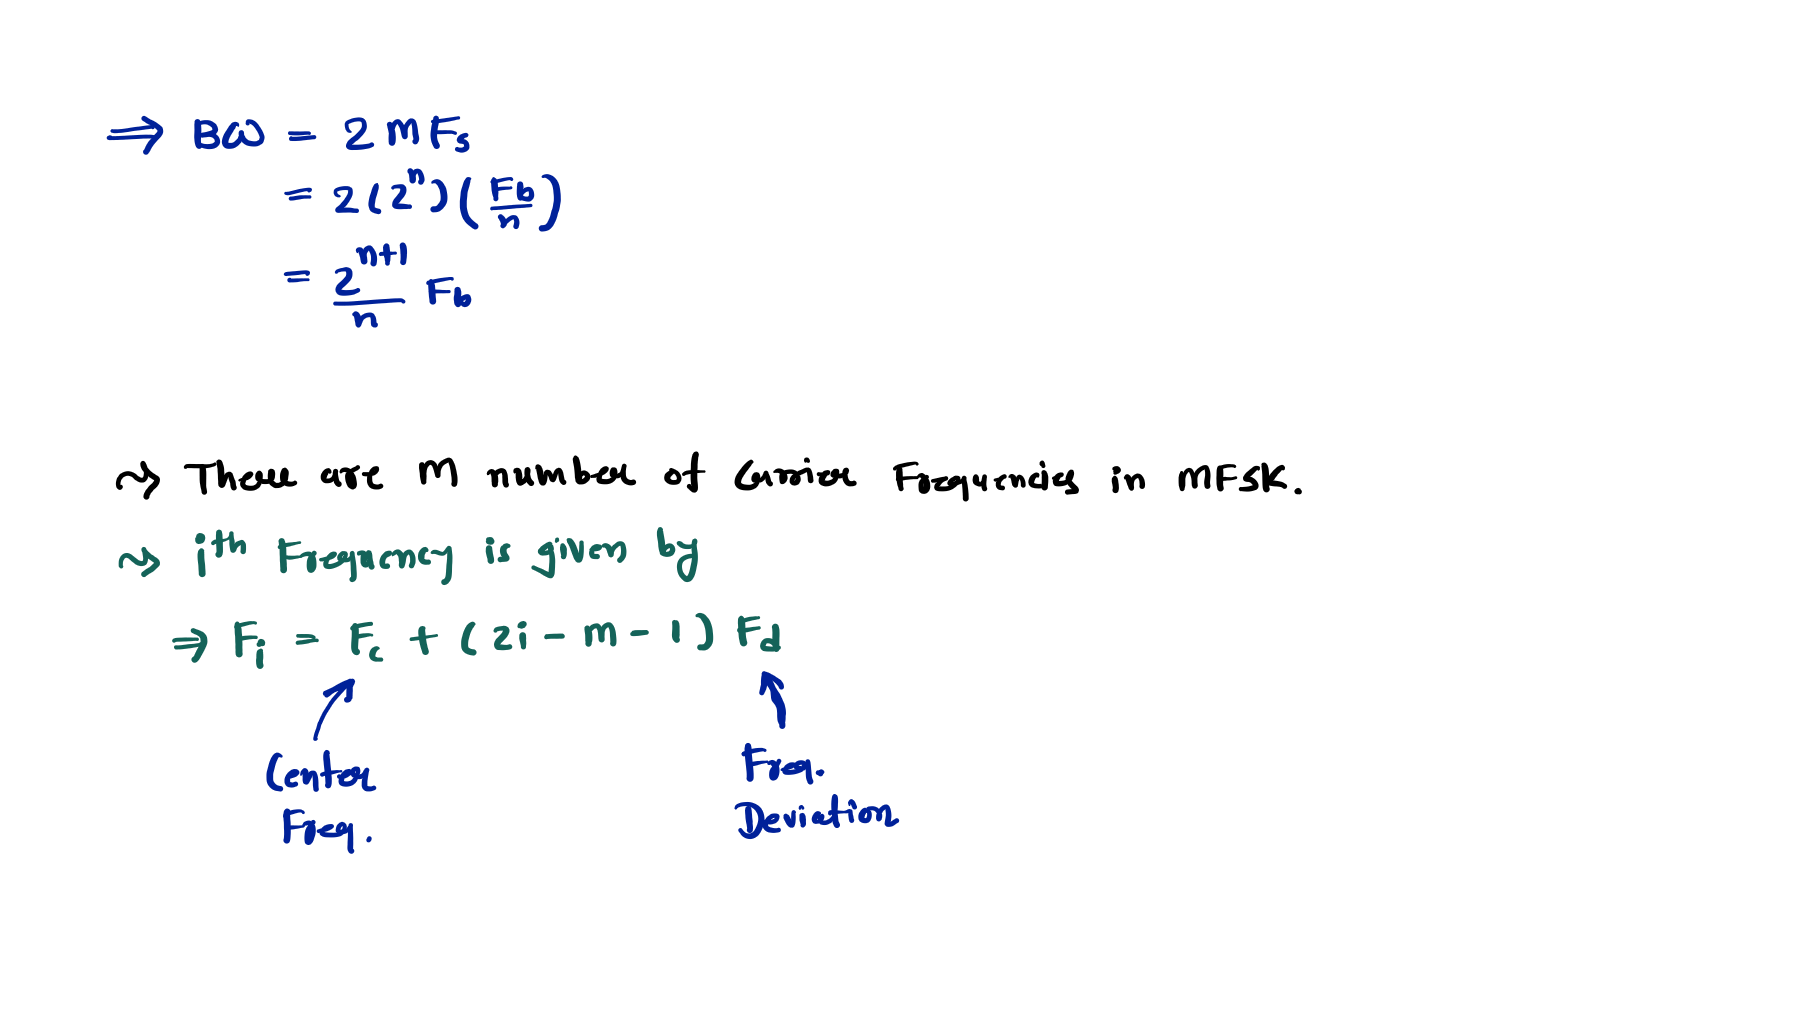 ⇒ BW = 2 M Fs
= 2 (2^n) (Fb/n)
= 2^(n+1)/n Fb
⤳ There are M number of Carrier Frequencies in MFSK.
⤳ i^th Frequency is given by
⇒ Fi = Fc + (2i - M - 1) Fd
Center Freq.
Freq. Deviation